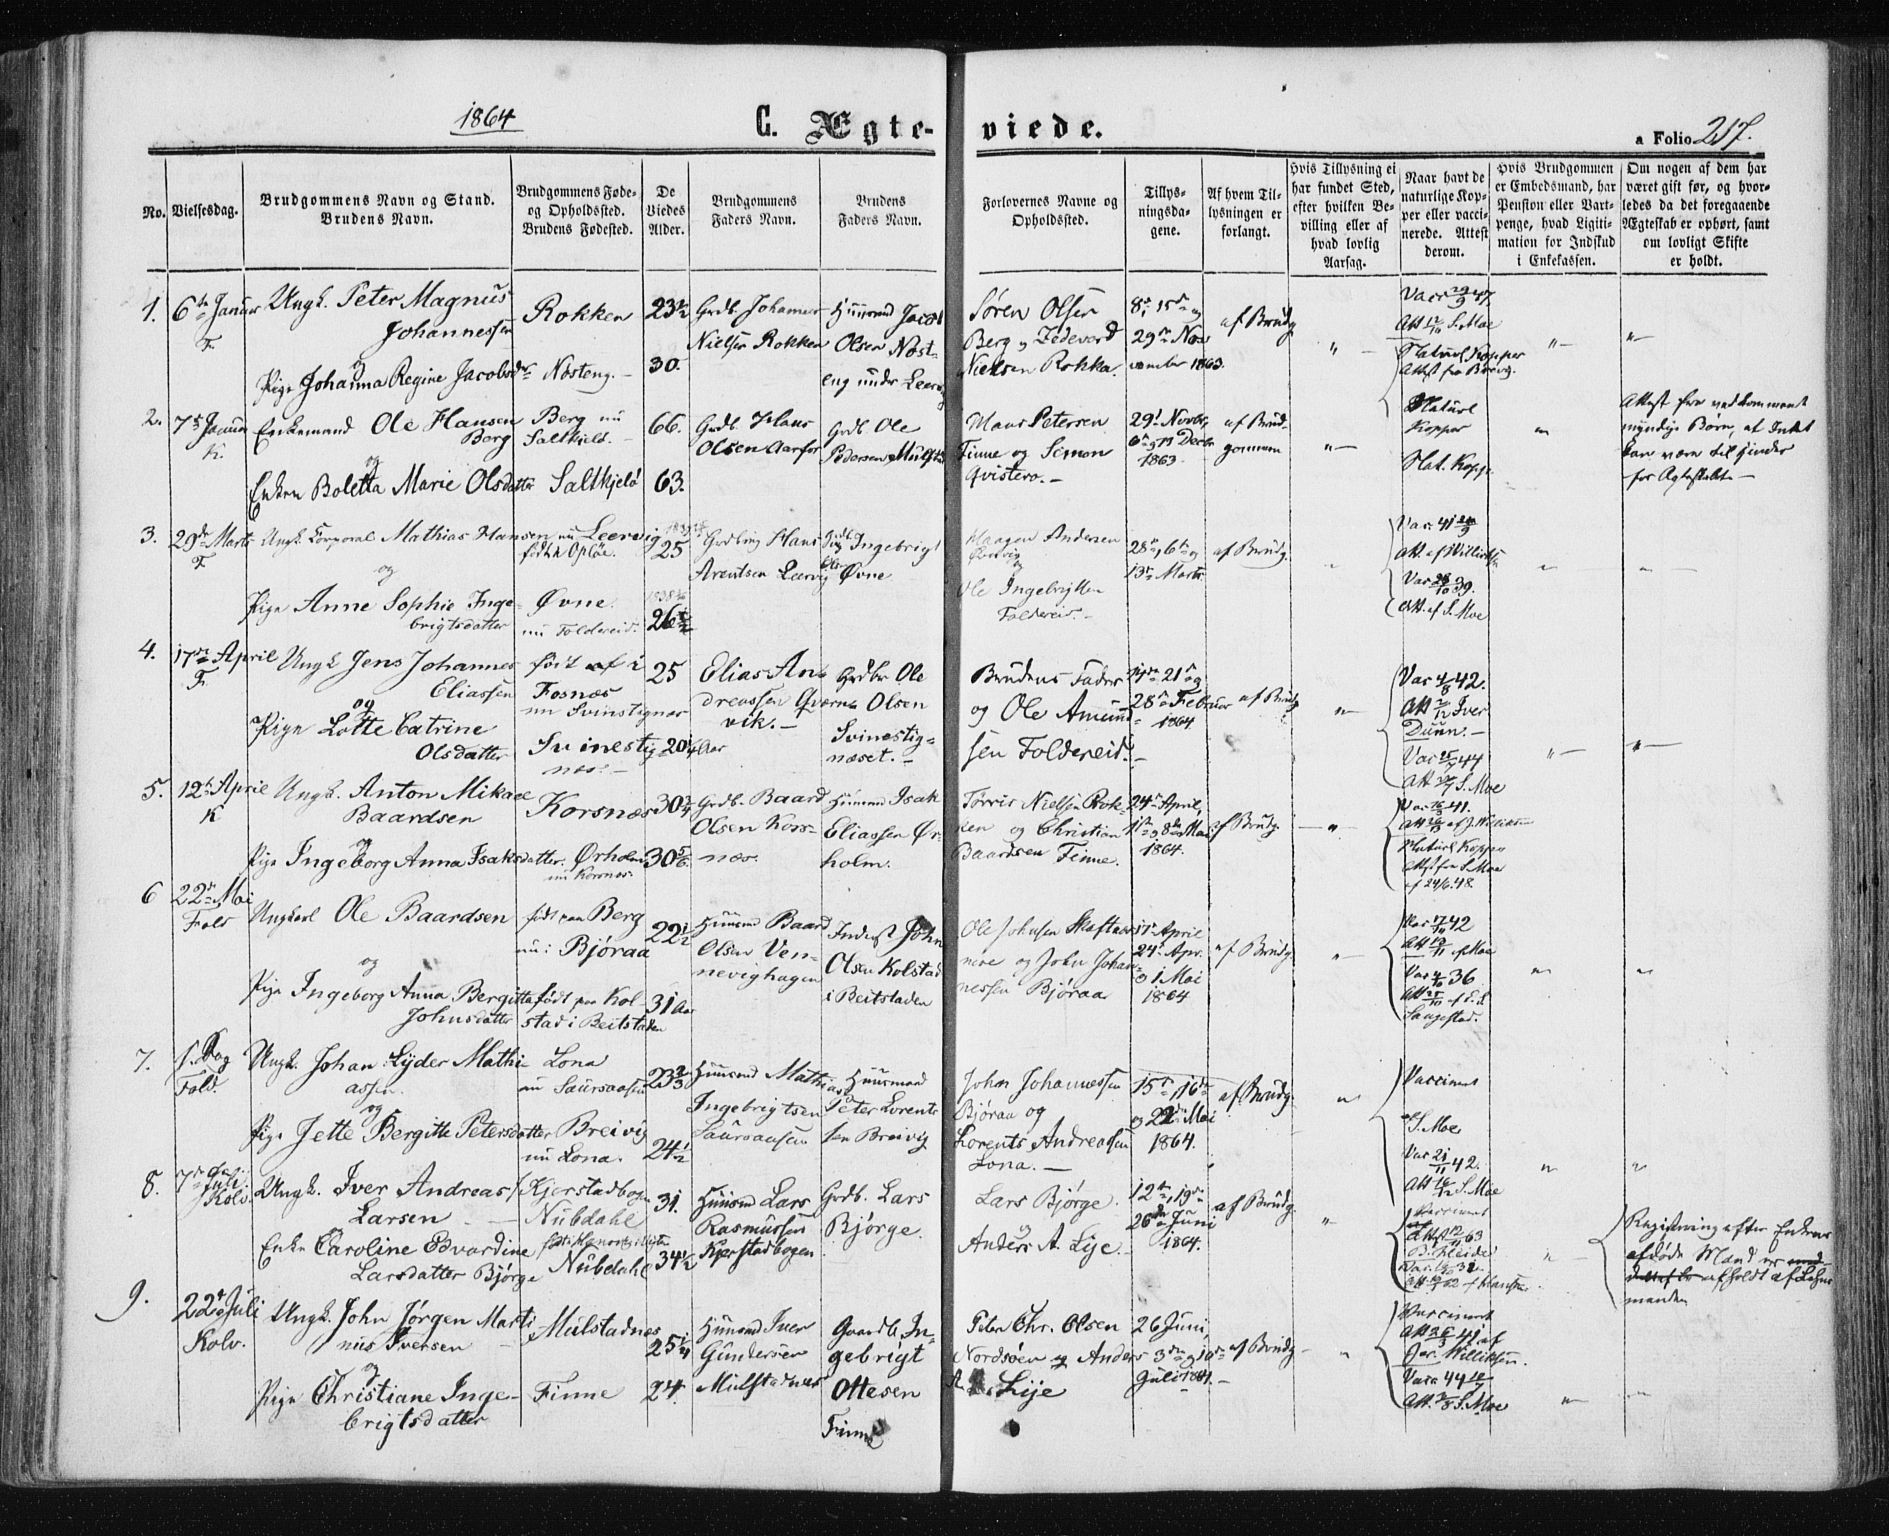 1864
C. Ægte-
viede.
a Folio 217.
No.
Vielsesdag.
Brudgommens Navn og Stand.
Brudens Navn.
Brudgommens Føde-
og Opholdssted.
Brudens Fødested.
De
Viedes
Alder.
Brudgommens
Faders Navn.
Brudens
Faders Navn.
Forlovernes Navne og
Opholdssted.
Tillys-
ningsda-
gene.
Af hvem Til-
lysningen er
forlangt.
Hvis Tillysning ei
har fundet Sted,
efter hvilken Be-
villing eller af
hvad lovlig
Aarsag.
Naar havt de
naturlige Kop-
per eller vacci-
nerede. Attest
derom.
Hvis Brudgommen
er Embedsmand, har
Pension eller Vart-
penge, hvad Ligiti-
mation for Indskud
i Enkekassen.
Om nogen af dem har
været gift før, og hvor-
ledes da det foregaaende
Ægteskab er ophørt, samt
om lovligt Skifte
er holdt.
1. 6te Januar
F.
Ungk. Peter Magnus
Johannessen
og
Pige Johanna Regine Jacobsdr
Rokken
Nosteng.
23½
30.
Grdb. Johannes
Nielsen Rokken
Huusmd Jacob
Olsen Nost-
eng under Leervig
Søren Olsen
Berg og Zedevard
Nielsen Rokka.
8de, 15de og
29de No-
vember 1863.
af Brudg.
Att 12/10 S. Moe
Naturl Kopper
Attest fra Brevig.
2. 7de Januar
K.
Enkemand Ole Hansen
Berg
og
Enken Boletta Marie Olsdatter
Berg nu
Saltkjels.
Saltkjelø
66.
63.
Grdb. Hans
Olsen Aarfor
Grdb. Ole
Pedersen Mulstad
Maus Petersen
Finne og Semon
Qvistero.
29de Novbr,
6te og 13 Decbr
1863.
af Brud-
gommen
Naturl
Kopper
Nat. Kopp.
Attest fra vedkommende
myndige Børn, at Intet
kan være til Hinder
for Ægteskabet
3. 29de Marts
F.
Ungk. Corporal Mathias Hansen
og
Pige Anne Sophie Inge-
brigtsdatter
nu Leervig
født Opløe.
Øvne.
nu Foldereid.
25
26½
Grdbrug Hans
Arentsen Leervig
Ingebrigt
Øvne
Haagen Andersen
og
Ole Ingebrigtsen
Foldereid.
28de, 6te og
13de Marts
af Brudg.
Vac. 41 24/9
Att. af Willicksen
Vac 28/10 39.
Att. af S. Moe
4. 17de April
F.
Ungk Jens Johannes
Eliassen
og
Pige Lotte Catrine
Olsdatter
født af i
Fosnæs
nu Svinstignæs
Svinestig-
næs.
25
20¼ Aar
Elias An-
dreassen Qværn-
vik.
Grdbr Ole
Olsen
Svinestig-
næset.
Brudens Fader
og Ole Amund-
sen Foldereid.
14de 21de og
28de Februar
1864.
af Brudg.
Vac 4/8 42.
Att 2/12 Iver
Duun.
Vac 25/7 44
Att S. Moe
5. 12te April
K
Ungk. Anton Mikael
Baardsen
og
Pige Ingeborg Anna Isaksdatter.
Korsnæs
Ørholm
nu Korsnæs.
30¾
30 5/6
Grdb. Baard
Olsen Kors-
næs.
Huusmd Isak
Eliassen Ør-
holm.
Torris Nielsen Rok-
ken og Christian
Baardsen Finne.
24de April,
1ste og 8de Mai
1864.
af Brudg.
Naturl Kopper
Attest fra S. Moe
af 24/6.48.
6 22de Mai
Fold
Ungkarl Ole Baardsen
og
Pige Ingeborg Anna Bergitte
Johnsdatter
født paa Berg
nu: Bjøraa
født paa Kol-
stad i Beitstaden
22½
31 Aar
Huusmd Baard
Olsen Ven-
nevighagen
Inderst John
Olsen Kolstad
i Beitstaden
Ole Johnsen Skaftnes-
moe og John Johan-
nessen Bjøraa
17de April
24de Apr.
og 1 Mai
1864
af Brudg.
Att af Moe
Vac 36
Saugestad.
7. s. Dag
Fold.
Ungk. Johan Lyder Mathi-
assen
og
Pige Jette Bergitte Petersdatter
Lona
nu Saursaasen
Breivig
nu Lona.
23⅔
24½
Huusmd Mathias
Ingebrigtsen
Saursaasen
Huusmand
Peter Lorent-
sen Breivig
John Johannessen
Bjøraa og
Lorents Andreassen
Lona.
15de, 16de
og 22de Mai
1864.
af Brudg.
Vaccineret
af S. Moe
Vac 21/11 42.
Att 16/12 S. Moe
8. 7de Juli
Kolv.
Ungk. Iver Andreas
Larsen
Enke Caroline Edvardine
Larsdatter Bjørge
Kjerstadbogen
Nubdahl
Nubdahl
31.
34½
Huusmd Lars
Rasmussen
Kjerstadbogen
Grdb. Lars
Bjørge.
Lars Bjørge
og
Anders A. Lije.
12te, 19de
26de Juni
1864.
af Brudg.
Vaccineret
Registrering efter Enkens
afdøde Mand er
afholdt af Lehns-
manden
9. 22de Juli
Kolv.
Ungk. John Jørgen Marti-
nus Iversen
og
Pige Christiane Inge-
brigtsdatter
Mulstadnæs
Finne
25¼
24.
Huusmd Iver
Gundersen
Mulstadnæs
Gaardb. In-
gebrigt
Ottesen
Finne
Peter Chr. Olsen
Nordsøen og Anders
A. Lije
26 Juni,
3de og 10de
Juli 1864.
af Brudg.
Vaccineret
Att 26/3 41 af
Jer. Willicksen.
Vacc 44
Att. S. Moe